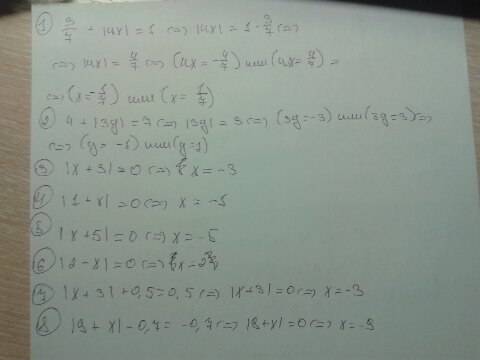 ① 3/7 + |4x| = 1 <=> |4x| = 1 - 3/7 <=>
<=> |4x| = 4/7 <=> (4x = -4/7) или (4x = 4/7) =
<=> (x = -1/7) или (x = 1/7)
② 4 + |3y| = 7 <=> |3y| = 3 <=> (3y = -3) или (3y = 3) <=>
<=> (y = -1) или (y = 1)
③ |x + 3| = 0 <=> x = -3
④ |1 + x| = 0 <=> x = -1
⑤ |x + 5| = 0 <=> x = -5
⑥ |2 - x| = 0 <=>
⑦ |x + 3| + 0,5 = 0,5 <=> |x + 3| = 0 <=> x = -3
⑧ |9 + x| - 0,7 = -0,7 <=> |9 + x| = 0 <=> x = -9